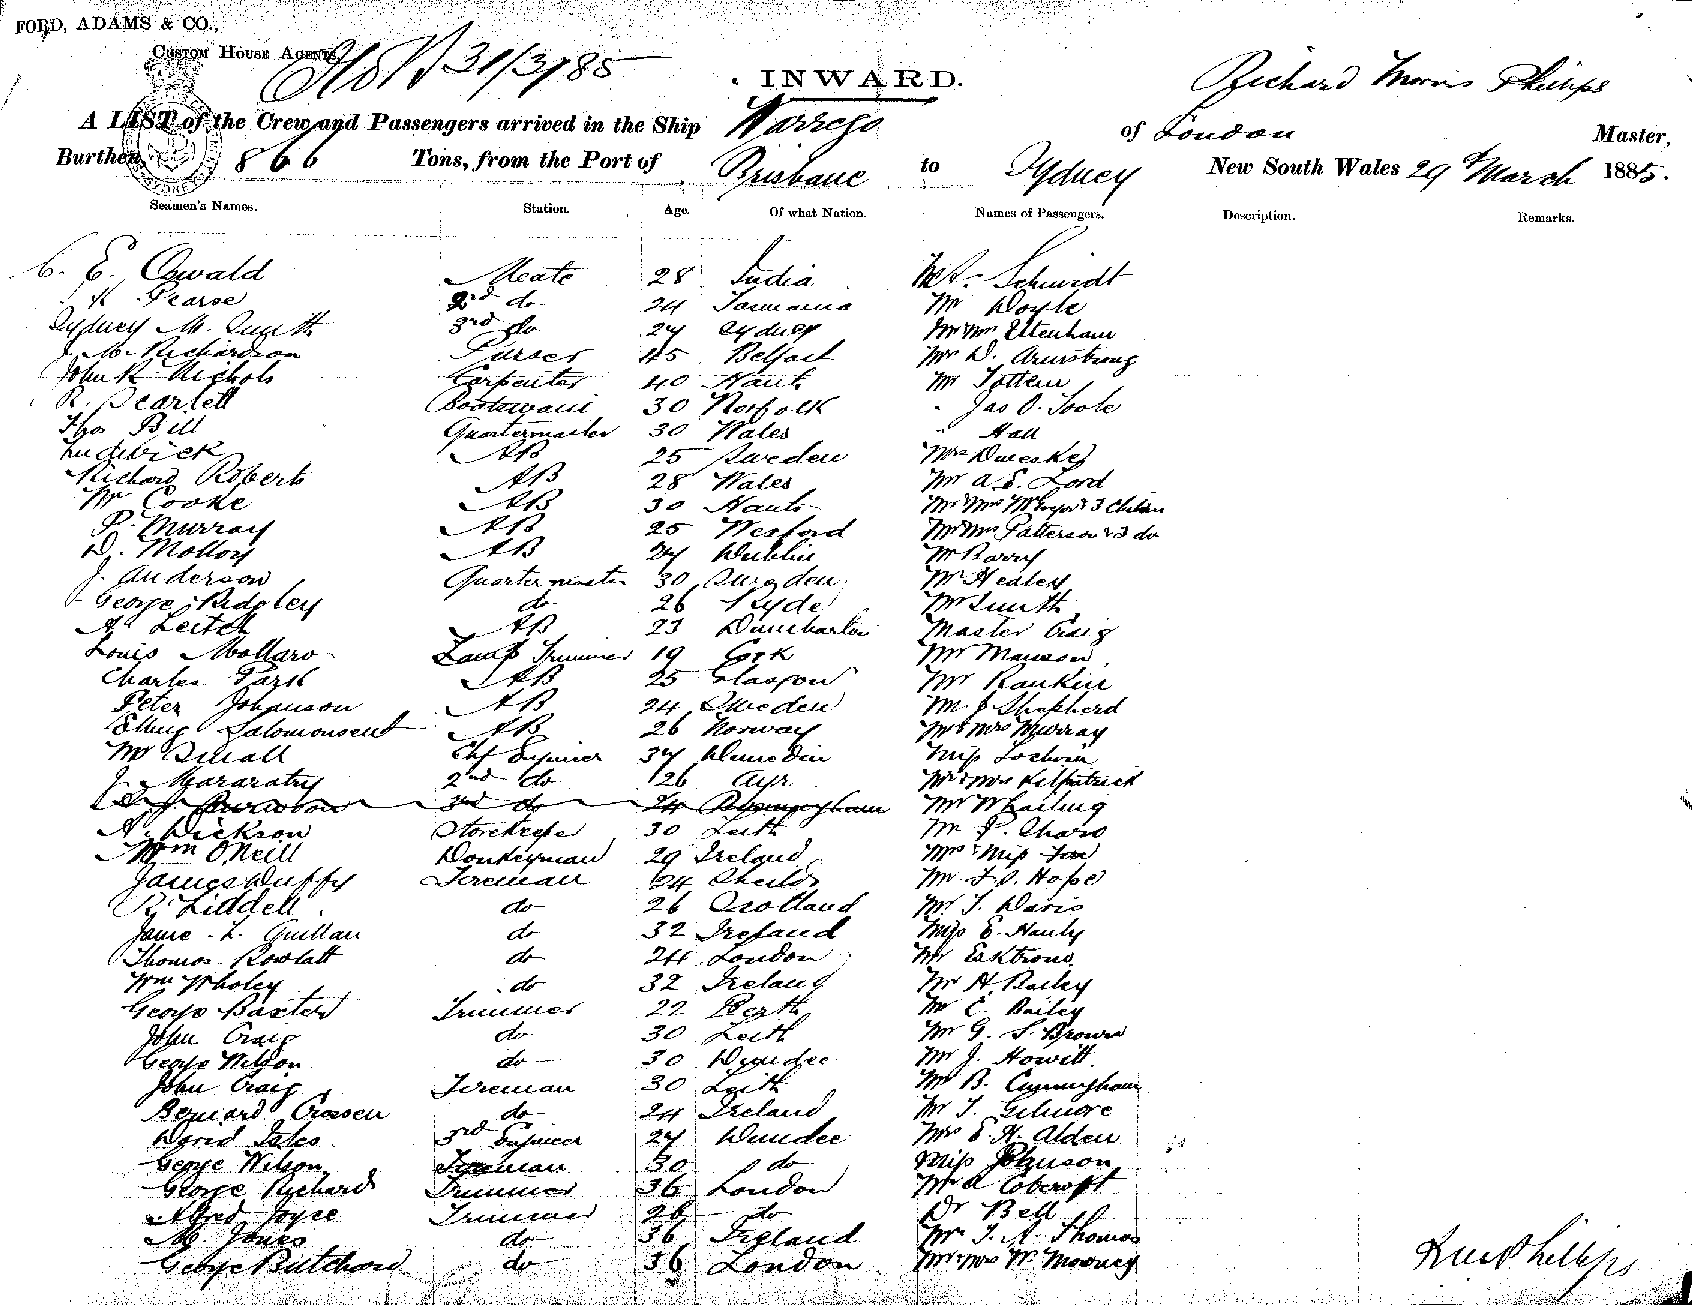 FORD, ADAMS & CO.,
CUSTOM HOUSE AGENTS
31/3/85
INWARD.
Richard Morris Phillips
A LIST of the Crew and Passengers arrived in the Ship Warrego of London Master,
Burthen, 866 Tons, from the Port of Brisbane to Sydney New South Wales 29 March 1885.
Seamen's Names. Station. Age. Of what Nation. Names of Passengers. Description. Remarks.
C. E. Oswald Mate 28 India Mr. Schmidt
K Pearse 2nd do 24 Tasmania Mr Doyle
Sydney M. Smith 3rd do 24 Sydney Mr Mrs Ettenham
J. M. Richardson Purser 45 Belfast Mr D. Armstrong
John R Nichols Carpenter 40 Hants Mr Totten
R. Scarlett Boatswain 30 Norfolk " Jas O. Toole
Thos Bill Quartermaster 30 Wales " Hall
Ludwick AB 25 Sweden Mrs
Richard Roberts AB 28 Wales Mr A. E. Lord
Wm Cooke AB 30 Hants Mr Mrs & 3 Children
P. Murray AB 25 Wexford Mr Mrs Patterson & 3 do
D. Molloy AB 24 Dublin Mr Barry
J. Anderson Quartermaster 30 Sweden Mr Healey
George Ridgley do 26 Ryde Mr Smith
A. Leitch AB 23 Dumbarton Master Craig
Louis Mollaro Lamp Trimmer 19 Cork Mr Manson
Charles Park AB 25 Glasgow Mr Rankin
Peter Johanson AB 24 Sweden Mr J Shepherd
Salomonsent AB 26 Norway Mr & Mrs Murray
Wm Small Chf Engineer 34 Dunedin Miss
J. 2nd do 26 Ayr Mr & Mrs Kilpatrick
3rd do 24 Birmingham Mr
A. Dickson Storekeeper 30 Leith Mr P. Sharo
Wm O'Neill Donkeyman 29 Ireland Mrs & Miss
James Duffy Fireman 24 Shields Mr F. O. Hope
R. Liddell do 26 Scotland Mr T. Davis
Jame. L. Guillan do 32 Ireland Miss E. Hanly
Thomas Rowlatt do 24 London Mr
Wm Wholey do 32 Ireland Mr H. Bailey
George Baxter Trimmer 22 Perth Mr E. Bailey
John Craig do 30 Leith Mr G. S. Brown
George Wilson do 30 Dundee Mr J. Howitt
John Craig Fireman 30 Leith Mr B. Cunningham
Bernard Crossen do 24 Ireland Mr T. Gilmore
David Isles 3rd Engineer 24 Dundee Mrs E. H. Alden
George Wilson Fireman 30 do Miss Johnson
George Richards Trimmer 36 London Mr A Cobcroft
Alfred Joyce Trimmer 26 do Dr Bell
M. Jones do 36 Ireland Mr T. M. Thomas
George Butchard do 36 London Mr & Mrs W. Mooney
Phillips